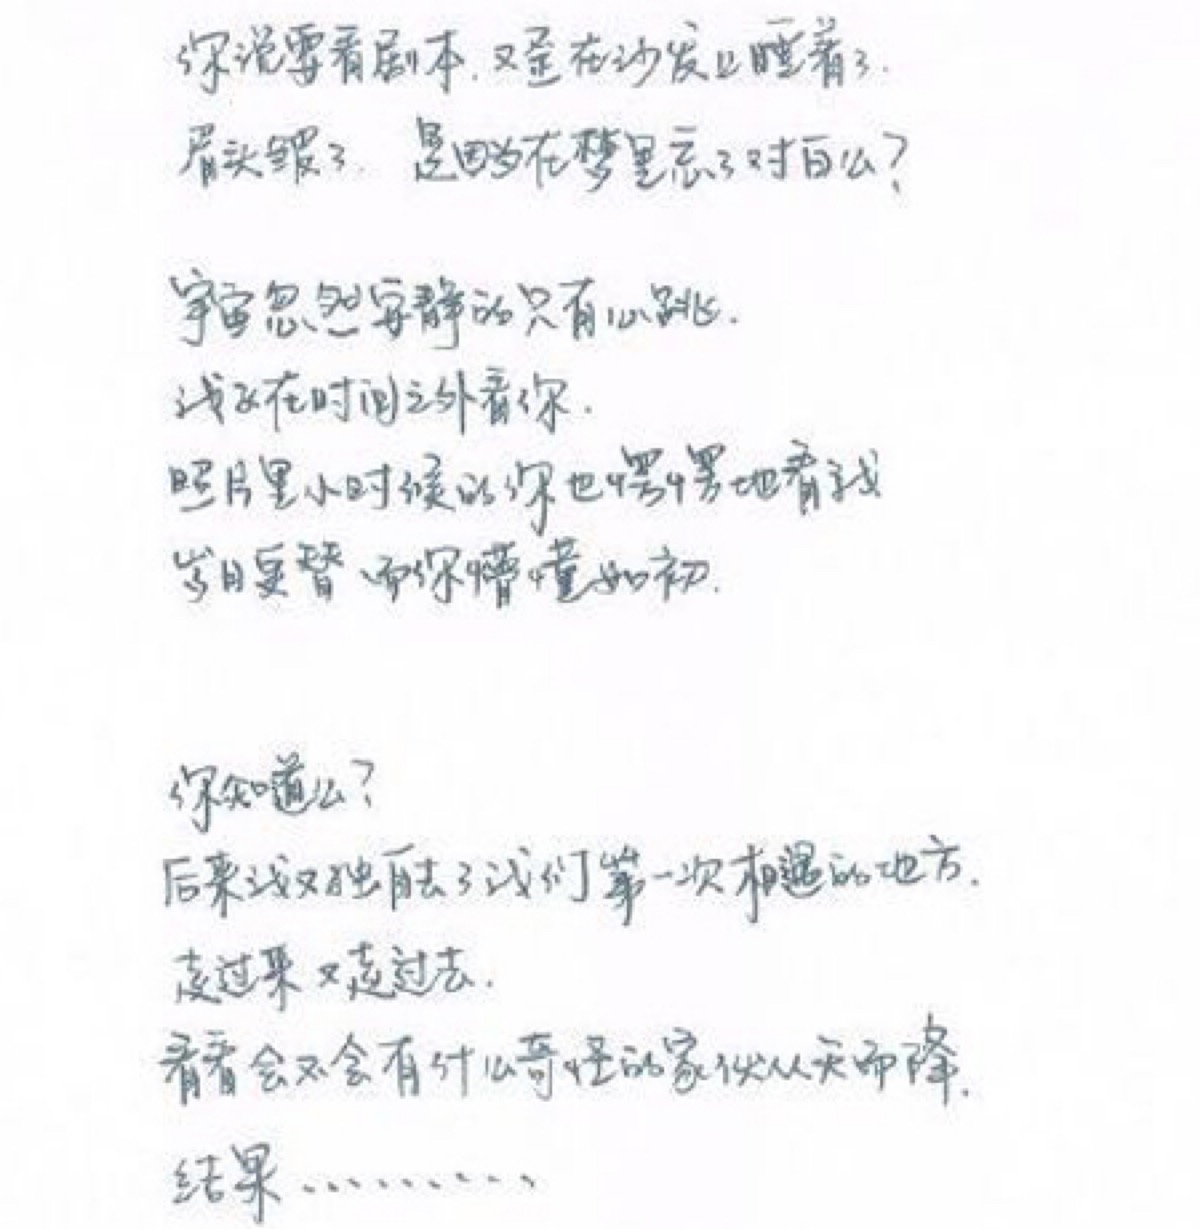 你说要看剧本，又歪在沙发上睡着了.
眉头皱了. 是因为在梦里忘了对白么?
宇宙忽然安静的只有心跳.
我又在时间之外看你.
照片里小时候的你也愣愣地看我
岁月更替、而你懵懂如初.
你知道么?
后来我又独自去了我们第一次相遇的地方.
走过来又走过去.
看看会不会有什么奇怪的家伙从天而降.
结果..........